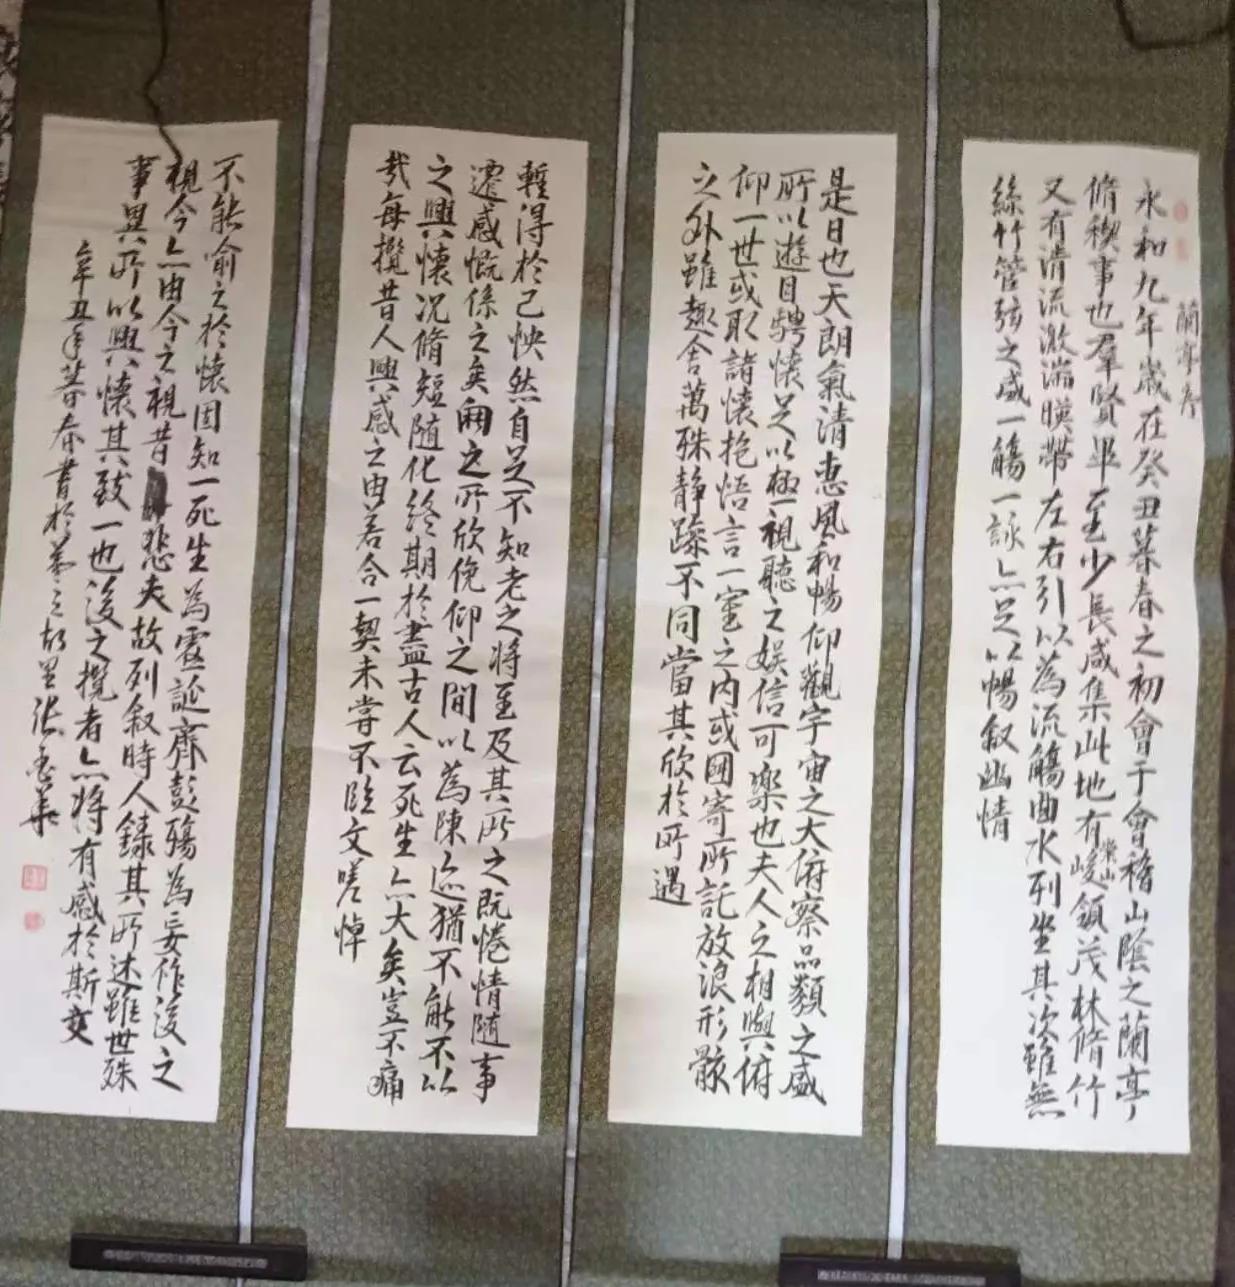 蘭亭序
永和九年歲在癸丑暮春之初會于會稽山陰之蘭亭
脩稧事也羣賢畢至少長咸集此地有崇山峻領茂林脩竹
又有清流激湍暎帶左右引以為流觴曲水列坐其次雖無
絲竹管弦之盛一觴一詠亦足以暢叙幽情
是日也天朗氣清惠風和暢仰觀宇宙之大俯察品類之盛
所以遊目騁懷足以極視聽之娛信可樂也夫人之相與俯
仰一世或取諸懷抱悟言一室之內或因寄所託放浪形骸
之外雖趣舍萬殊静躁不同當其欣於所遇
暫得於己怏然自足不知老之將至及其所之既惓情隨事
遷感慨係之矣向之所欣俛仰之間以為陳迹猶不能不以
之興懷况脩短隨化終期於盡古人云死生亦大矣豈不痛
哉每攬昔人興感之由若合一契未嘗不臨文嗟悼
不能喻之於懷固知一死生為虛誕齊彭殤為妄作後之
視今亦由今之視昔悲夫故列叙時人錄其所述雖世殊
事異所以興懷其致一也後之攬者亦將有感於斯文
辛丑年暮春書於 胡里 張 華